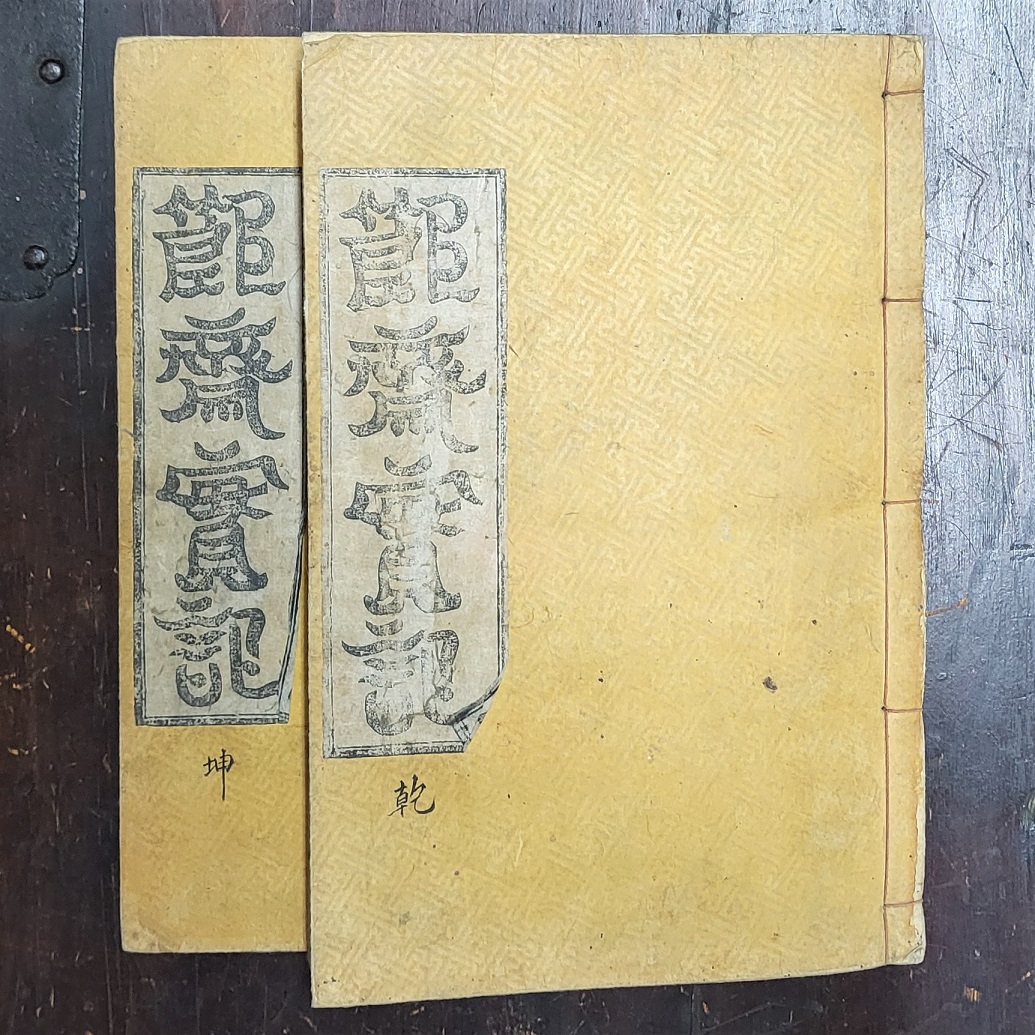 節齋實記
乾
節齋實記
坤